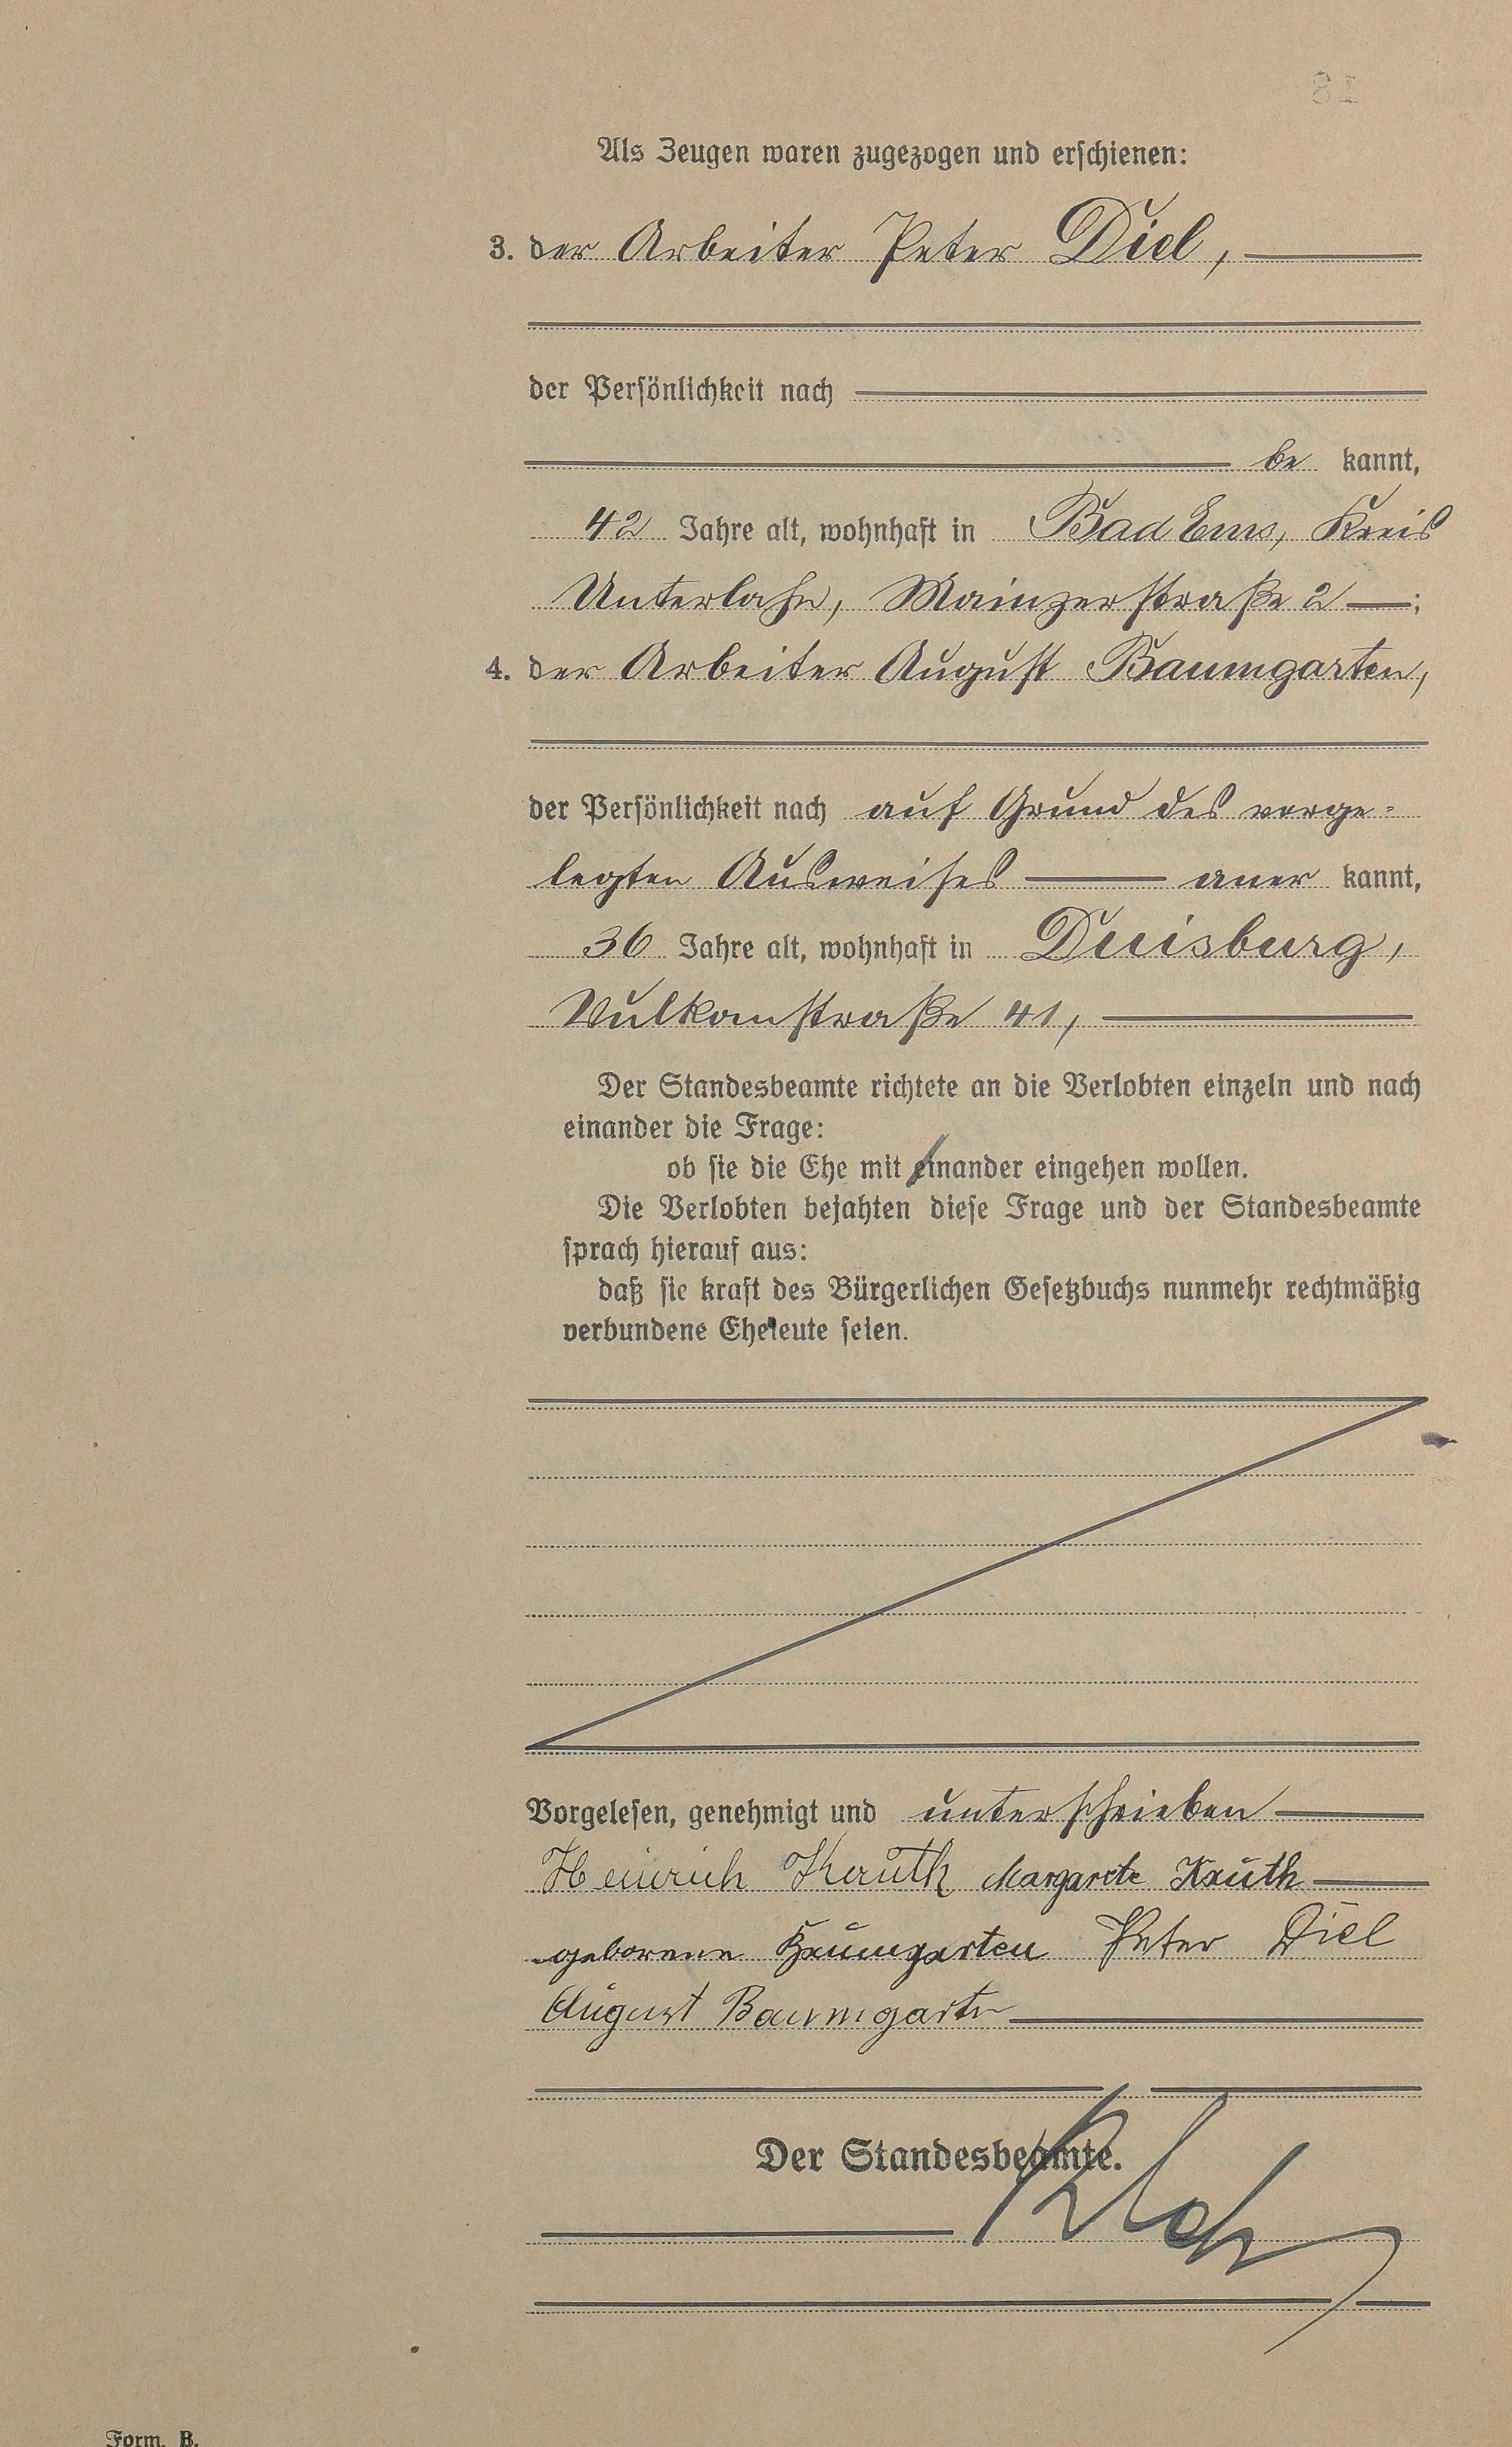 Als Zeugen waren zugezogen und erschienen:
3. der Arbeiter Peter Diel,
der Persönlichkeit nach
be kannt,
42 Jahre alt, wohnhaft in Bad Ems, Kreis
Unterlahn, Mainzerstraße 2 ;
4. der Arbeiter August Baumgarten,
der Persönlichkeit nach auf Grund des vorge=
legten Ausweises aner kannt,
36 Jahre alt, wohnhaft in Duisburg,
Vulkanstraße 41,
Der Standesbeamte richtete an die Verlobten einzeln und nach
einander die Frage:
ob sie die Ehe mit einander eingehen wollen.
Die Verlobten bejahten diese Frage und der Standesbeamte
sprach hierauf aus:
daß sie kraft des Bürgerlichen Gesetzbuchs nunmehr rechtmäßig
verbundene Eheleute seien.
Vorgelesen, genehmigt und unterschrieben
Heinrich Knuth Margarete Knuth
geborene Baumgarten Peter Diel
August Baumgarten
Der Standesbeamte.
Form. B.